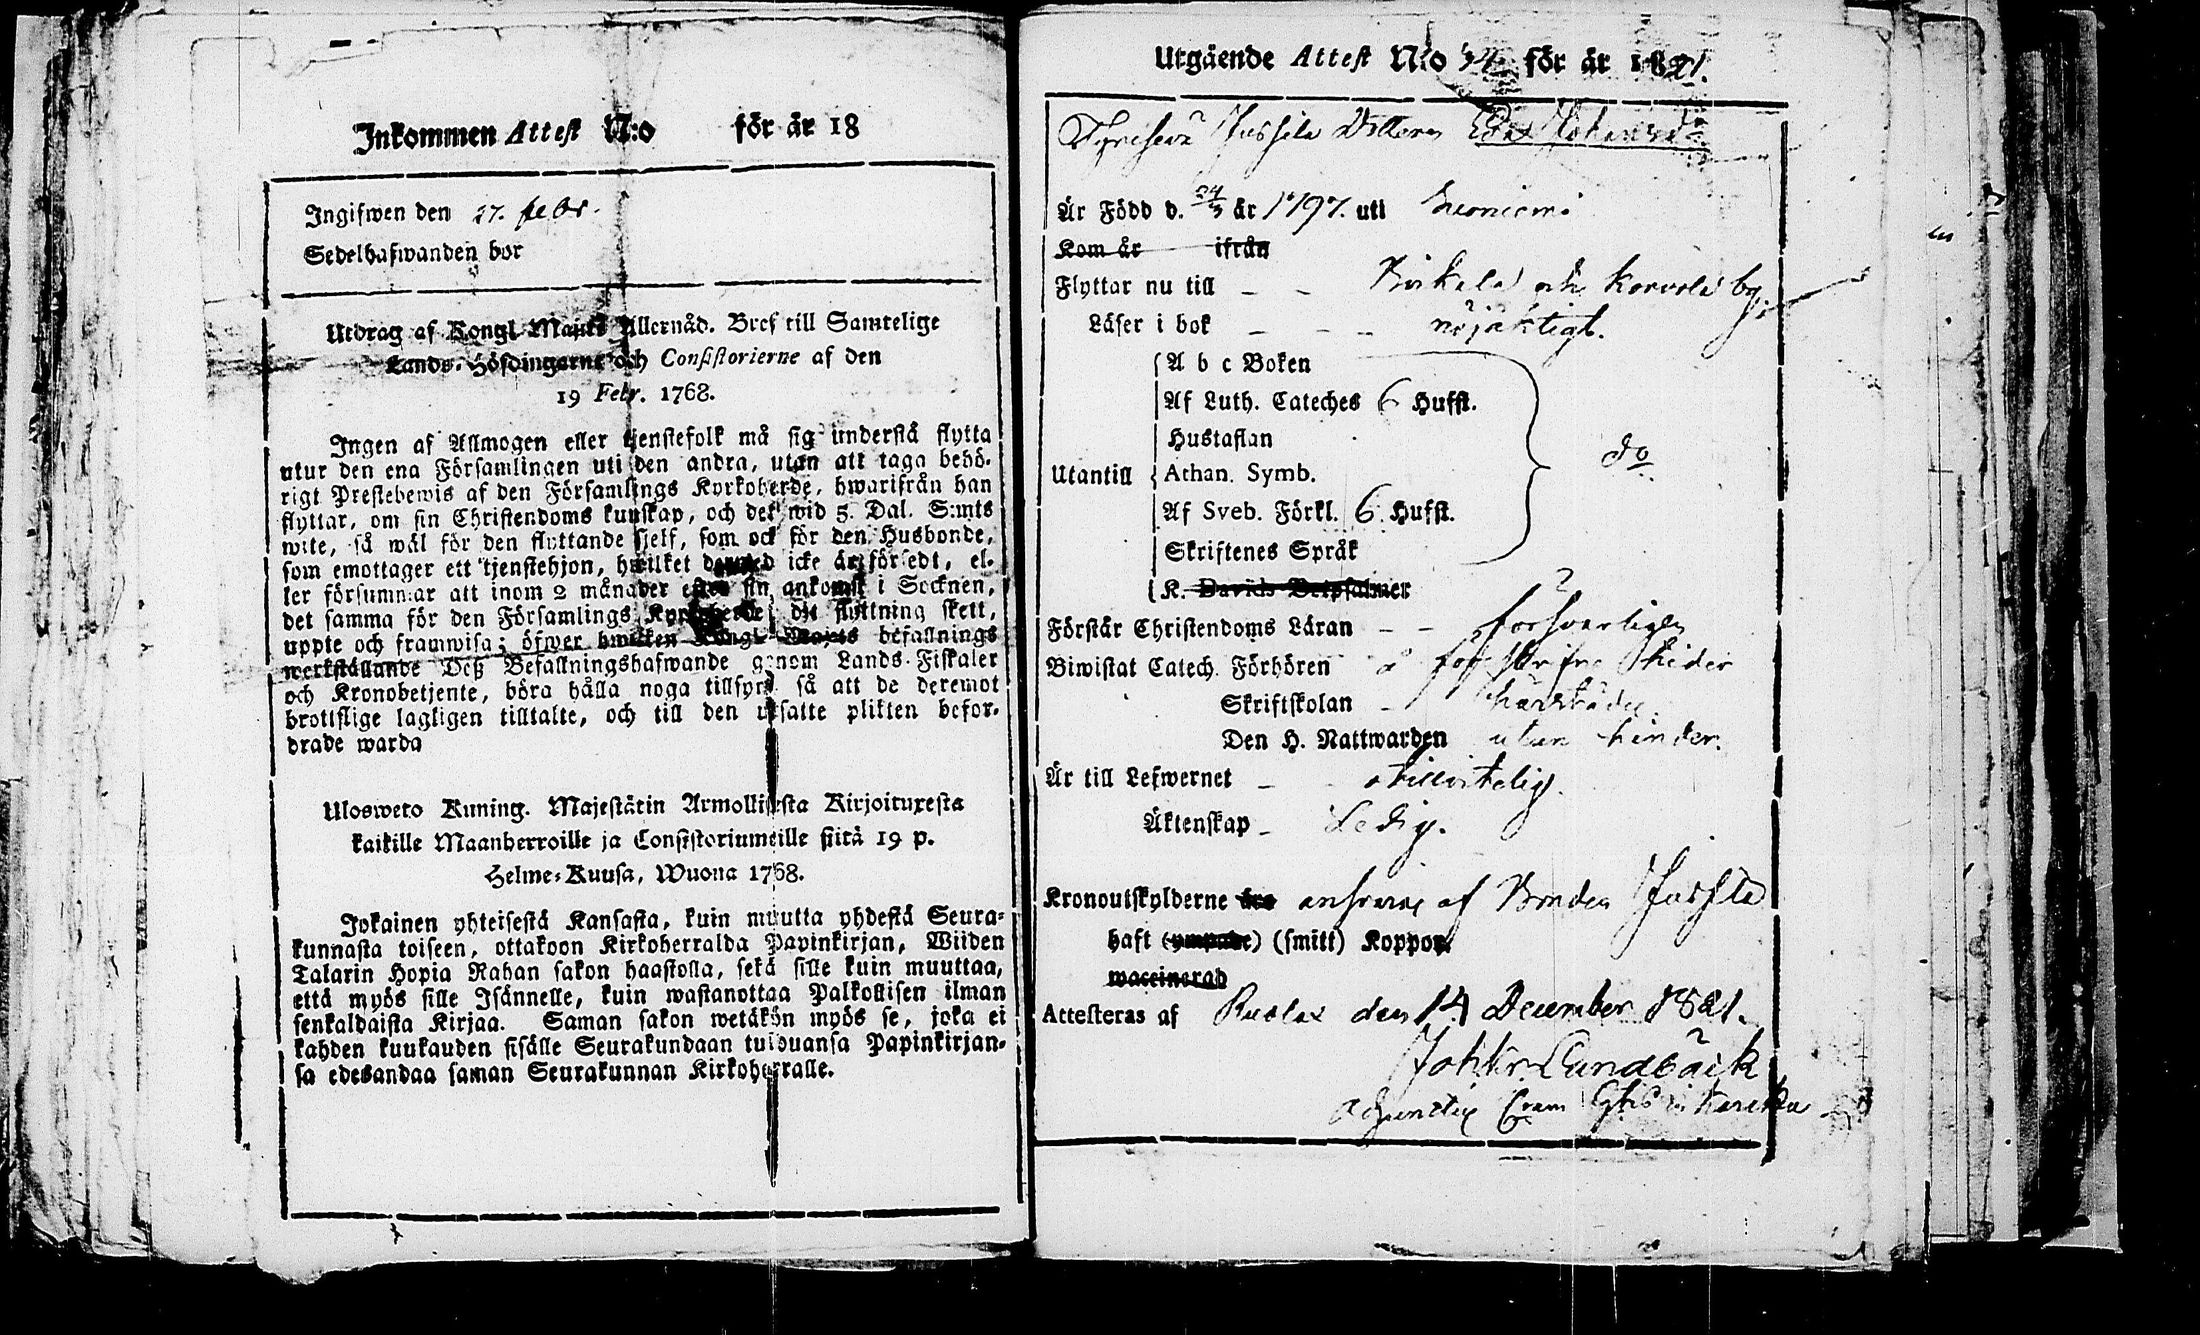 Inkommen Attest N:o för år 18
Ingifwen den 27. febr.
Sedelhafwanden bor
Utdrag af Kongl. Maj:ts Allernåd. Bref till Samtelige
Lands-Höfdingarne och Consistorierne af den
19 Febr. 1768.
Ingen af Allmogen eller tjenstefolk må sig understå flytta
utur den ena Församlingen uti den andra, utan att taga behö-
rigt Prestebewis af den Församlings Kyrkoherde, hwarifrån han
flyttar, om sin Christendoms kunskap, och det wid 5. Dal. S:mts
wite, så wäl för den flyttande sjelf, som ock för den Husbonde,
som emottager ett tjenstehjon, hwilket dermed icke är försedt, el-
ler försummar att inom 2 månader efter sin ankomst i Socknen,
det samma för den Församlings Kyrkoherde, dit flyttning skett,
uppte och framwisa; öfwer hwilken Kongl. Maj:ts befallnings
werkställande Deß Befallningshafwande genom Lands-Fiskaler
och Kronobetjente, böra hålla noga tillsyn så att de deremot
brottslige lagligen tilltalte, och till den utsatte plikten befor-
drade warda
Ulosweto Kuning. Majestätin Armollisesta Kirjoituxesta
kaikille Maanherroille ja Consistoriumeille siitä 19 p.
Helme-Kuusa, Wuona 1768.
Jokainen yhteisestä Kansasta, kuin muutta yhdestä Seura-
kunnasta toiseen, ottakoon Kirkoherralda Papinkirjan, Wiiden
Talarin Hopia Rahan sakon haastolla, sekä sille kuin muuttaa,
että myös sille Isännelle, kuin wastanottaa Palkollisen ilman
senkaldaista Kirjaa. Saman sakon wetäkön myös se, joka ei
kahden kuukauden sisälle Seurakundaan tulduansa Papinkirjan-
sa edesandaa saman Seurakunnan Kirkoherralle.
Utgående Attest N:o 54 för år 1821.
Jussila Dotteren Johansdr
Är Född d. 24/3 år 1797. uti Kuoniemi
Kom år ifrån
Flyttar nu till Pirkala och Korvola by
Läser i bok nöjaktigt.
A b c Boken
Af Luth. Cateches 6 Hufst.
Hustaflan
Utantill Athan. Symb. do
Af Sveb. Förkl. 6 Hufst.
Skriftenes Språk
K. Davids Botpsalmer
Förstår Christendoms Läran försvarligen
Biwistat Catech. Förhören å föreskrifne tider
Skriftskolan härstädes.
Den H. Nattwarden utan hinder.
Är till Lefwernet otillvitelig.
Äktenskap Ledig.
Kronoutskylderne äro ansvaras af Bonden Jussila
haft (ympade) (smitt) Koppor
waccinerad
Attesteras af den 14 December 1821.
Joh: